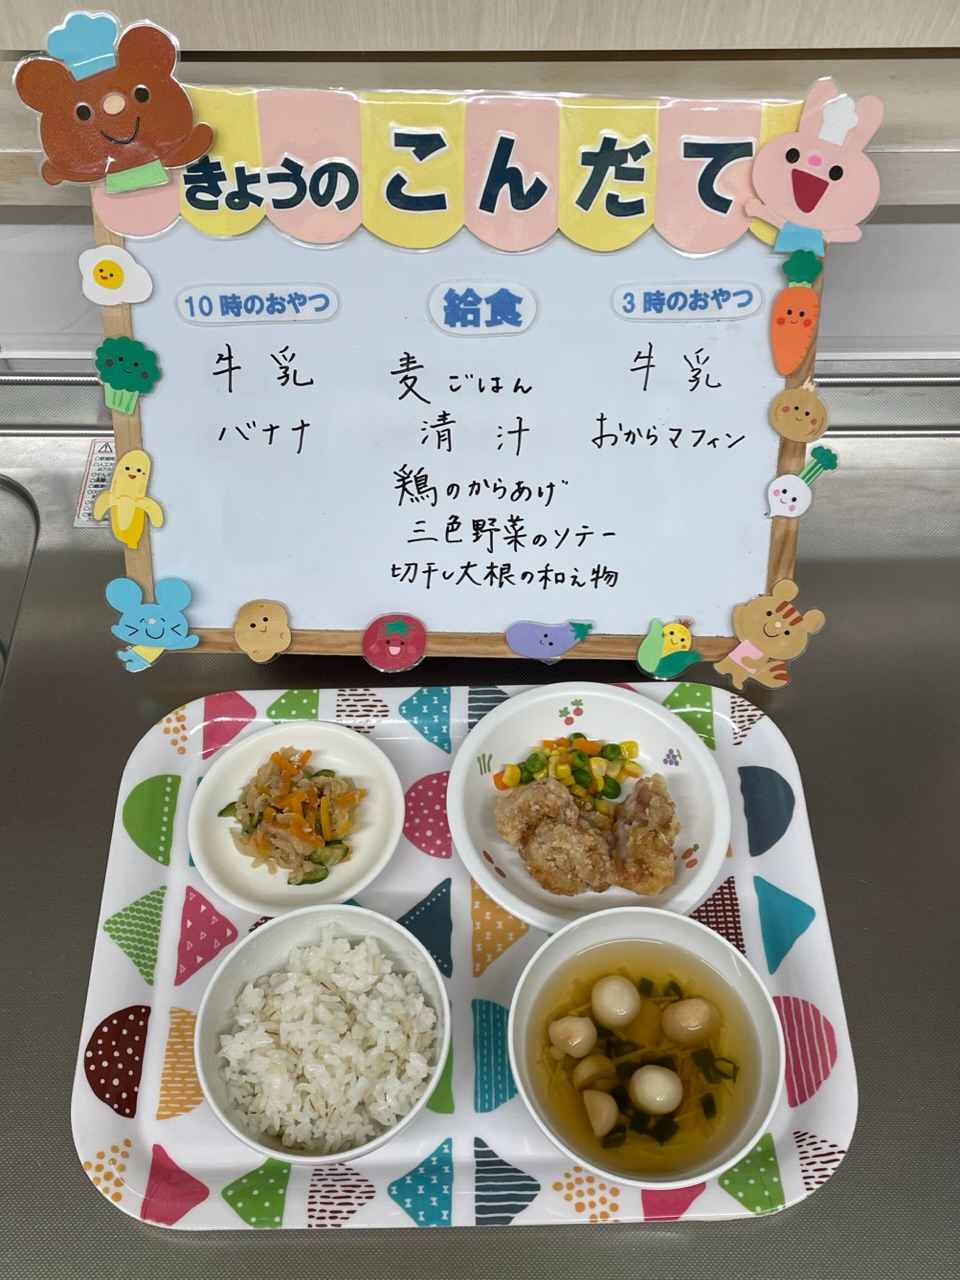 きょうの こんだて
10時のおやつ
牛乳
バナナ
給食
麦ごはん
清汁
鶏のからあげ
三色野菜のソテー
切干し大根の和え物
3時のおやつ
牛乳
おからマフィン